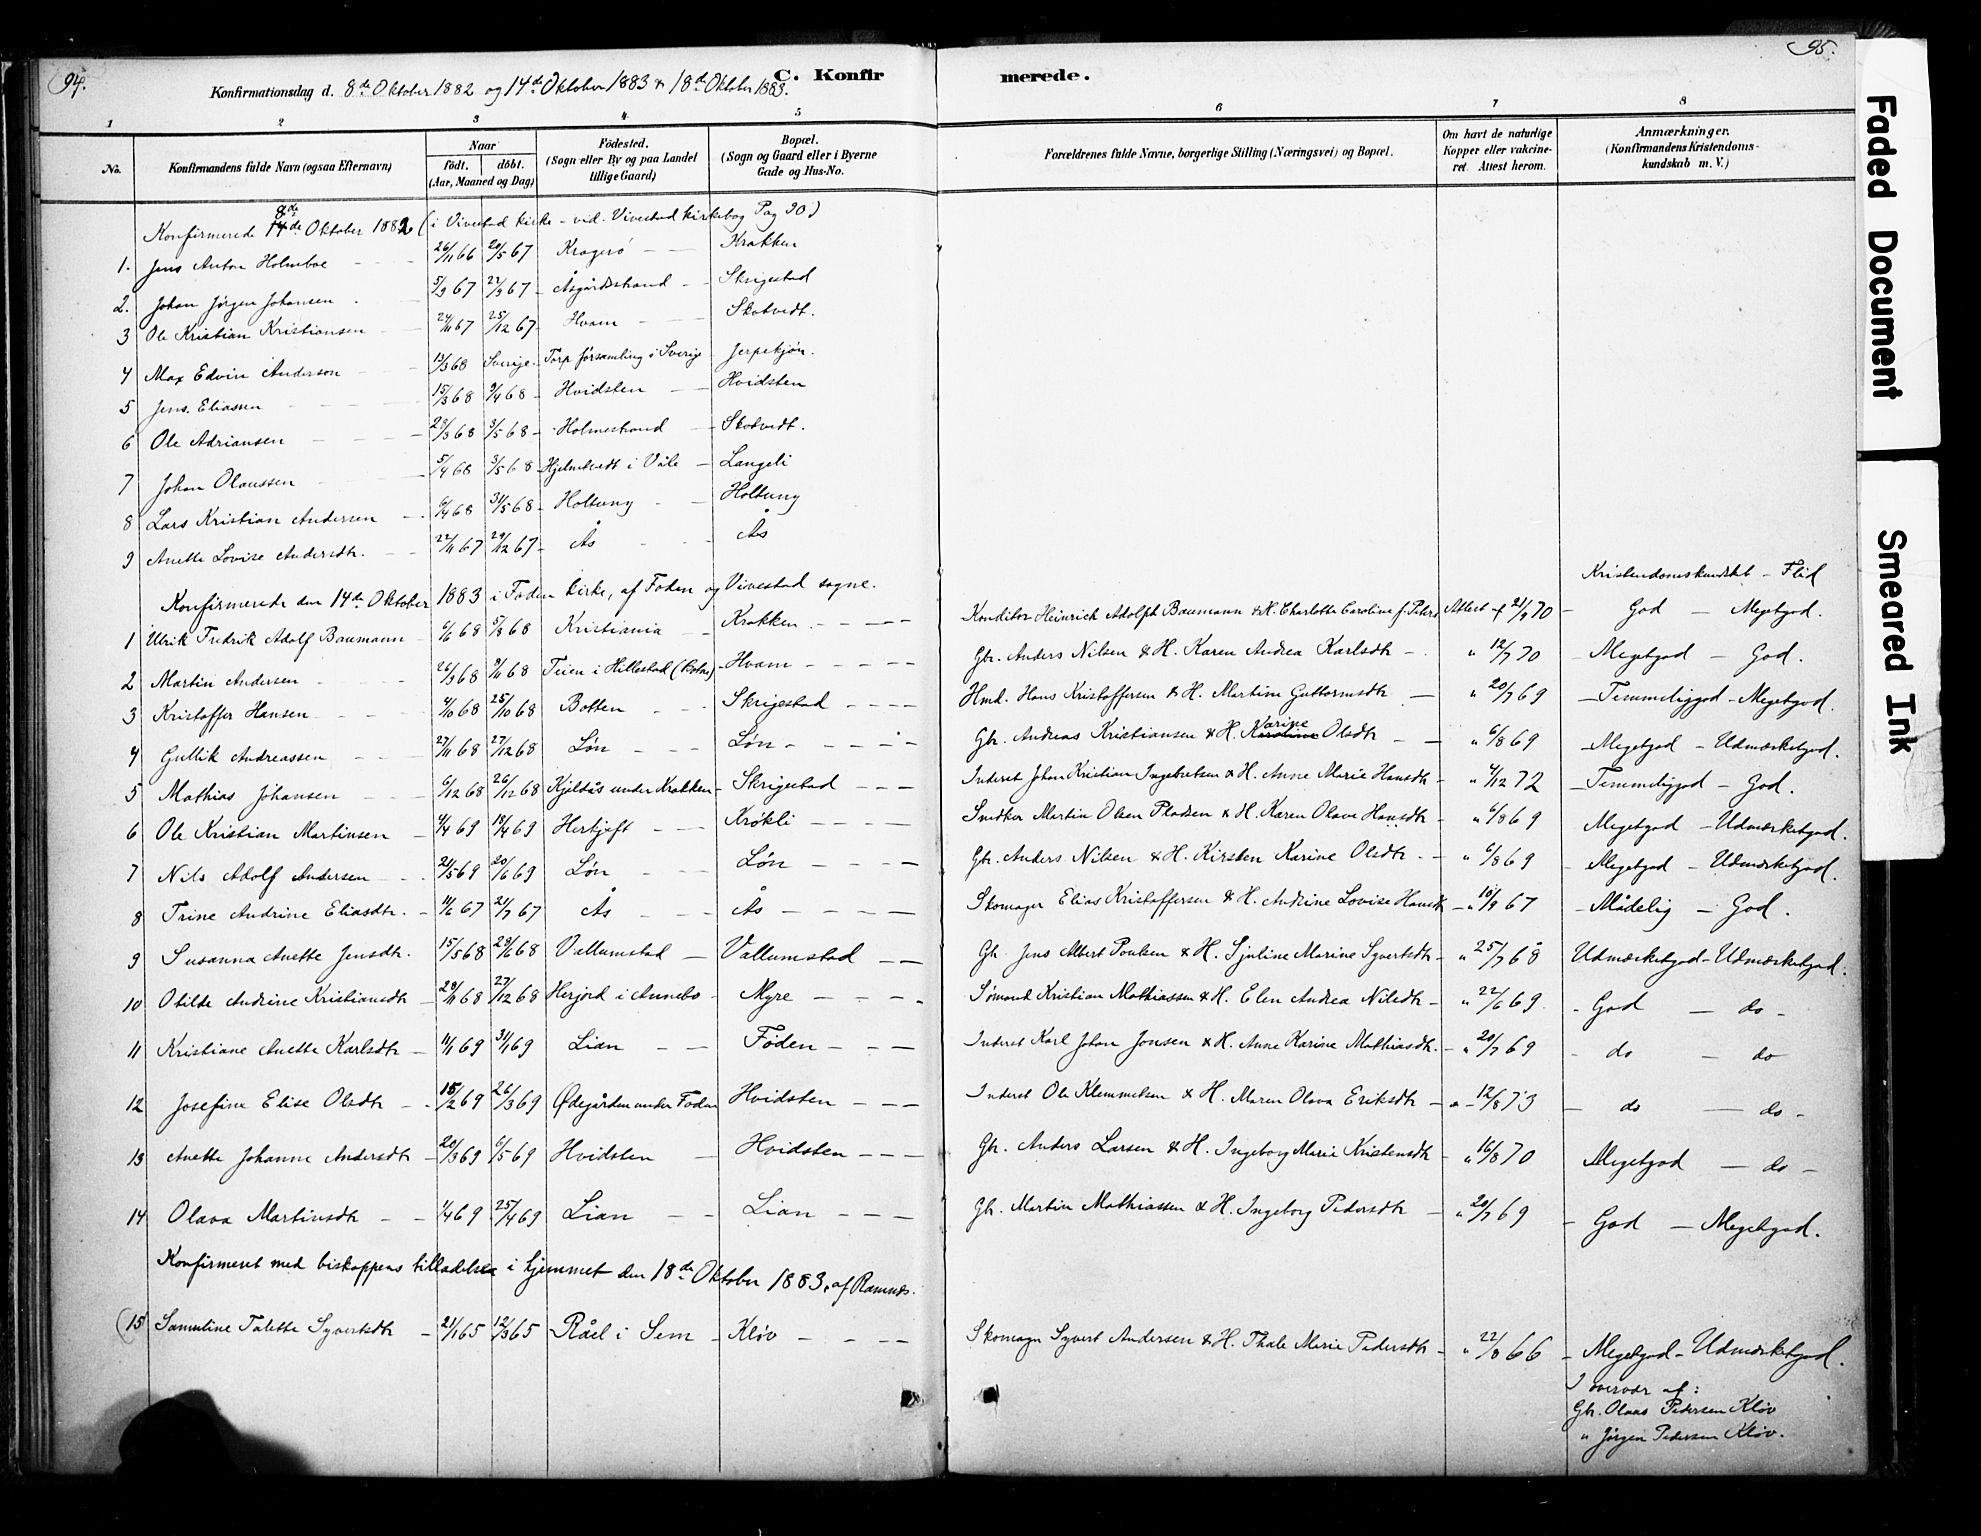 94.
95.
C. Konfirmerede.
Konfirmationsdag d. 8de Oktober 1882 og 14de Oktober 1883 & 18de Oktober 1883.
1 2 3 4 5 6 7 8
No. Konfirmandens fulde Navn (ogsaa Efternavn) Naar født. døbt. (Aar, Maaned og Dag) Fødested. (Sogn eller By og paa Landet tillige Gaard) Bopæl. (Sogn og Gaard eller i Byerne Gade og Hus-No. Forældrenes fulde Navne, borgerlige Stilling (Næringsvei) og Bopæl. Om havt de naturlige Kopper eller vaccineret. Attest herom. Anmærkninger. (Konfirmandens Kristendomskundskab m. V.)
Konfirmerede 14de 8de Oktober 1882 (i Vivestad kirke - vid. Vivestad kirkebog Pag 20)
1. Jens Anton Holmboe 26/11 66 20/5 67 Kragerø Krakken
2. Johan Jørgen Johansen 5/3 67 22/3 67 Åsgårdstrand Skrigestad
3 Ole Kristian Kristiansen 24/11 67 25/12 67 Hvam Skotvedt.
4 Max Edvin Anderson 13/3 68 Sverige Torp församling i Sverige Jerpekjøn.
5 Jens Eliassen 15/3 68 9/4 68 Hvidsten Hvidsten
6 Ole Adriansen 28/3 68 3/5 68 Holmestrand Skotvedt.
7 Johan Olaussen 5/4 68 3/5 68 Hjelmtvedt i Våle Langeli
8 Lars Kristian Andersen 6/4 68 31/5 68 Holtung Holtung
9 Anette Lovise Andersdtr. 22/11 67 29/12 67 Ås Ås
Konfirmerede den 14de Oktober 1883 i Foden kirke, af Foden og Vivestad sogne. Kristendomskundskb - Flid
1 Ulrik Fredrik Adolf Baumann 6/6 68 5/8 68 Kristiania Krakken Konditor Heinrich Adolph Baumann & H. Charlotte Caroline f. Peters Attest af 21/9 70 God - Megetgod.
2 Martin Andersen 26/3 68 9/11 68 Teien i Hillestad (Botne) Hvam Gbr. Anders Nilsen & H. Karen Andrea Karlsdtr " 12/7 70 Megetgod - God.
3 Kristoffer Hansen 4/10 68 25/10 68 Botten Skrigestad Hmd. Hans Kristoffersen & H. Martine Guttormsdtr " 20/7 69 Temmeliggod - Megetgod.
4 Gullik Andreassen 27/11 68 27/12 68 Løn Løn Gbr. Andreas Kristiansen & H. Karoline Karine Olsdtr " 6/8 69 Megetgod - Udmærketgod.
5 Mathias Johansen 6/12 68 26/12 68 Kjeldås under Krakken Skrigestad Inderst Johan Kristian Ingebretsen & H. Anne Marie Hansdtr " 4/12 72 Temmeliggod - God.
6 Ole Kristian Martinsen 4/4 69 18/4 69 Herkjeft Krøkli Snedker Martin Olsen Pladsen & H. Karen Olave Hansdtr " 6/8 69 Megetgod - Udmærketgod.
7 Nils Adolf Andersen 21/5 69 20/6 69 Løn Løn Gbr. Anders Nilsen & H. Kirsten Karine Olsdtr. " 6/8 69 Megetgod - Udmærketgod.
8 Trine Andrine Eliasdtr. 11/6 67 21/7 67 Ås Ås Skomager Elias Kristoffersen & H. Andrine Lovise Hansdtr " 10/9 67 Mådelig - God.
9 Susanna Anette Jensdtr. 15/5 68 28/6 68 Vallumstad Vallumstad Gbr. Jens Albert Poulsen & H. Sjuline Marine Syvertsdtr " 25/7 68 Udmærketgod - Udmærketgod.
10 Otilde Andrine Kristiansdtr 29/11 68 27/12 68 Herjord i Annebo Myre Sømand Kristian Mathiassen & H. Elen Andrea Nilsdtr " 22/6 69 God - do -
11 Kristiane Anette Karlsdtr 11/1 69 31/1 69 Lian Føden Inderst Karl Johan Jonsen & H. Anne Karine Mathiasdtr. " 20/7 69 do - do
12 Josefine Elise Olsdtr 15/2 69 26/3 69 Ødegården under Foden Hvidsten Inderst Ole Klemmetsen & H. Maren Olava Eriksdtr " 12/8 73 do - do -
13 Anette Johanne Andersdtr 20/3 69 6/5 69 Hvidsten Hvidsten Gbr. Anders Larsen & H. Ingeborg Marie Kristensdtr " 16/8 70 Megetgod - do -
14 Olava Martinsdtr 1/4 69 25/4 69 Lian Lian Gbr. Martin Mathiassen & H. Ingeborg Pedersdtr " 20/7 69 God - Megetgod.
Konfirmeret med biskoppens tilladelse i hjemmet den 18de Oktober 1883, af Ramnæs.
(15) Samuline Talette Syvertsdtr 21/1 65 12/3 65 Råel i Sem Kløv Skomager Syvert Andersen & H. Thale Marie Pedersdtr " 22/8 66 Megetgod - Udmærketgod.
I overvær af:
Gbr. Olaus Pedersen Kløv
" Jørgen Pedersen Kløv.
Faded Document
Smeared Ink